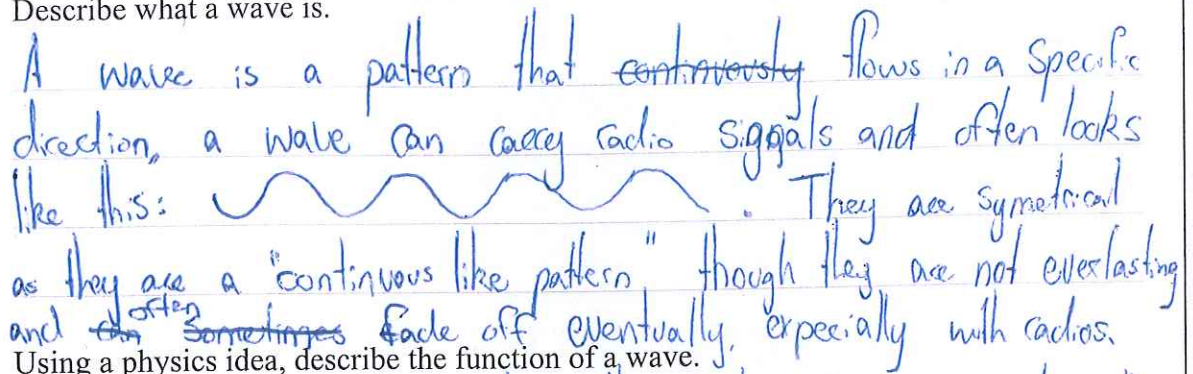 Describe what a wave is.
A wave is a pattern that continuously flows in a specific
direction, a wave can carry radio signals and often looks
like this: . They are symetrical
as they are a "continuous like pattern" though they are not everlasting
and can often sometimes fade off eventually, expecially with radios.
Using a physics idea, describe the function of a wave.